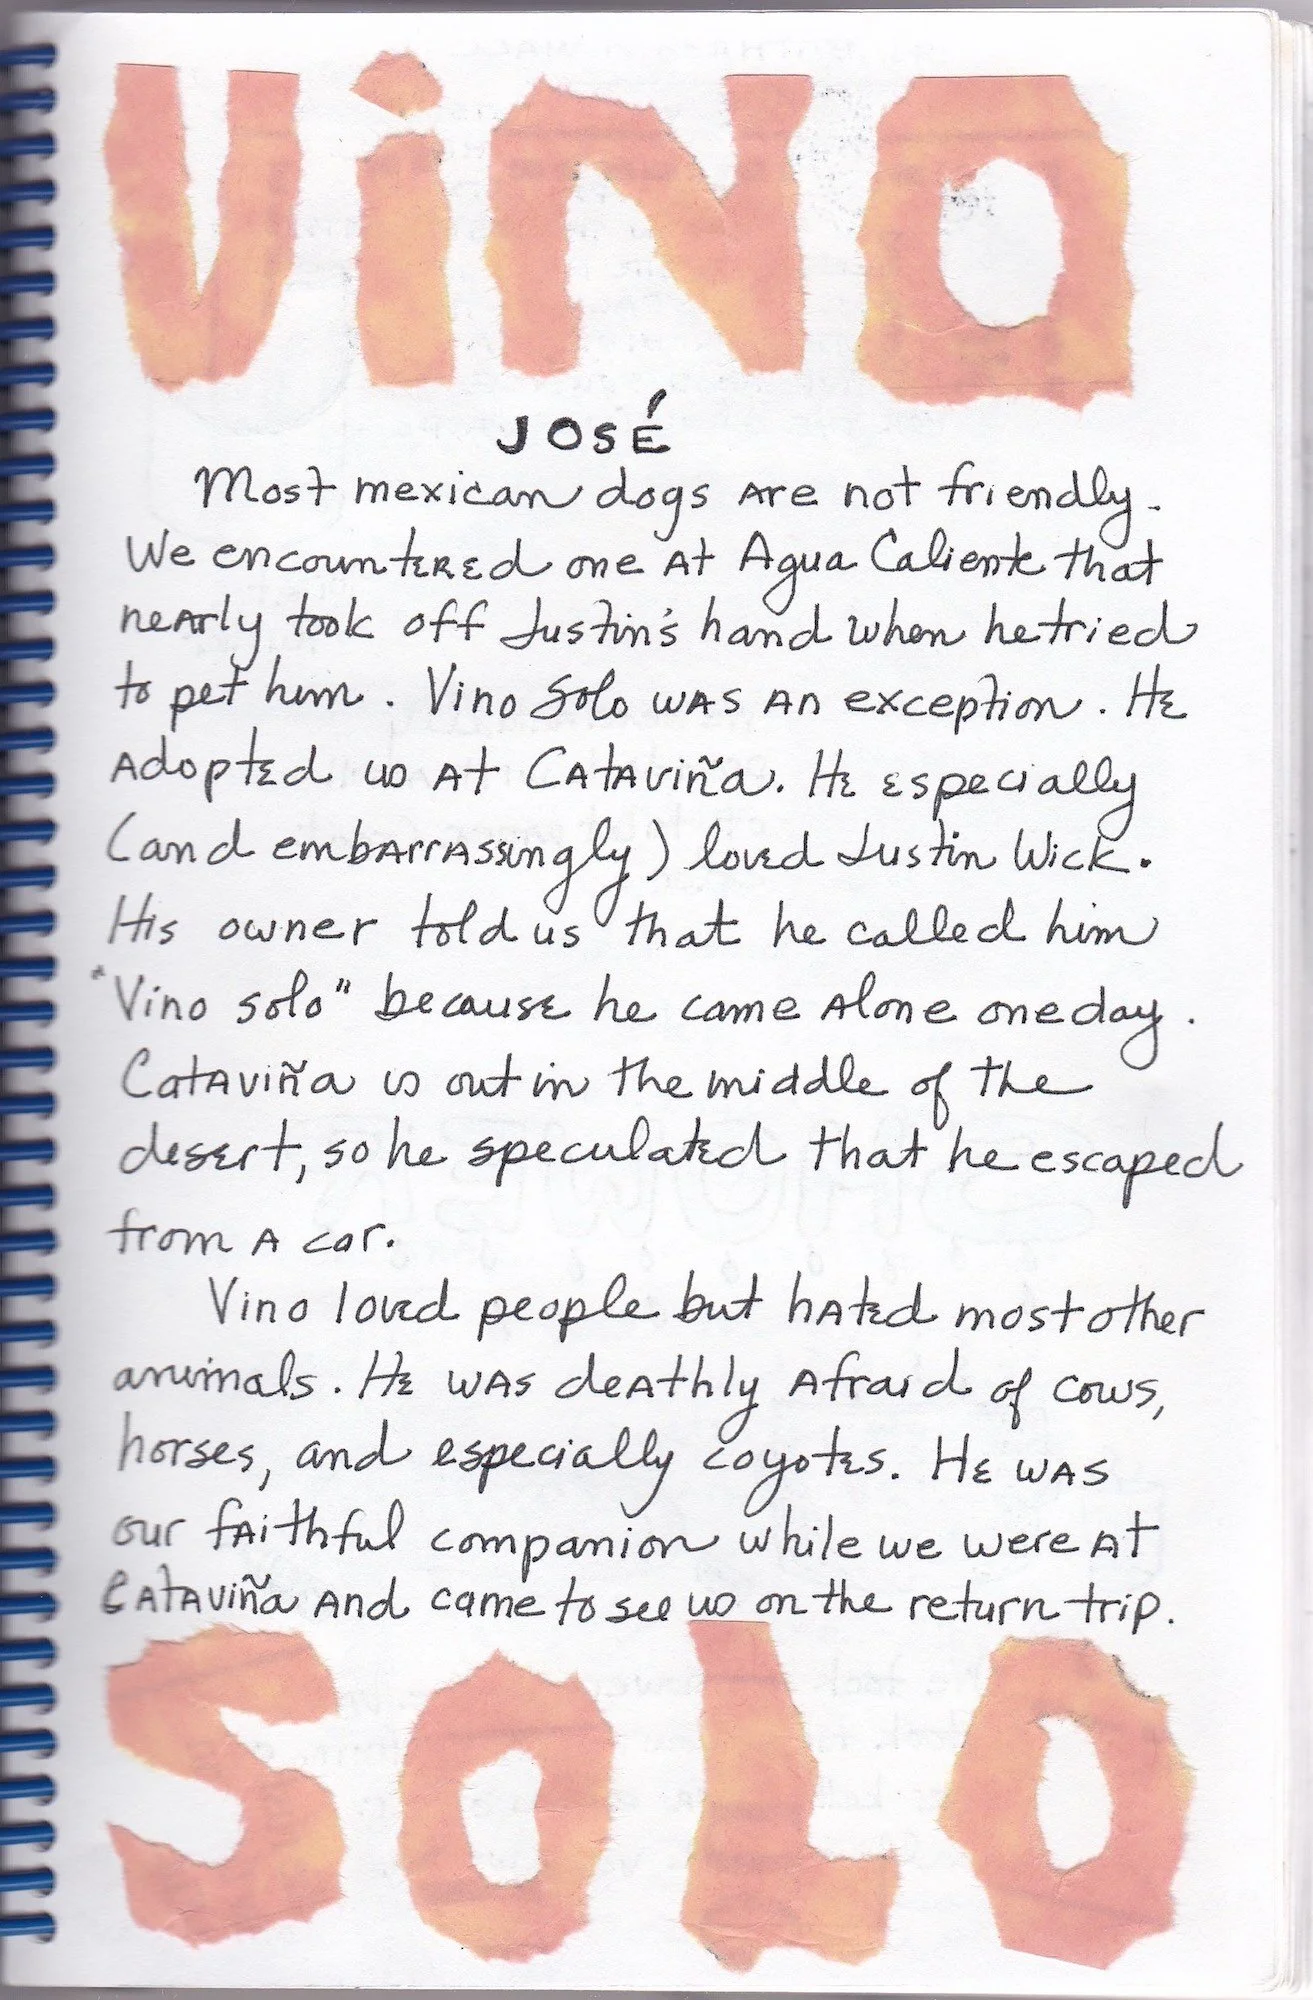 ViNO
JOSÉ
Most mexican dogs are not friendly.
We encountered one at Agua Caliente that
nearly took off Justin's hand when he tried
to pet him. Vino Solo was an exception. He
adopted us at Cataviña. He especially
(and embarrassingly) loved Justin Wick.
His owner told us that he called him
"Vino solo" because he came alone one day.
Cataviña is out in the middle of the
desert, so he speculated that he escaped
from a car.
Vino loved people but hated most other
animals. He was deathly afraid of cows,
horses, and especially coyotes. He was
our faithful companion while we were at
Cataviña and came to see us on the return trip.
SOLO